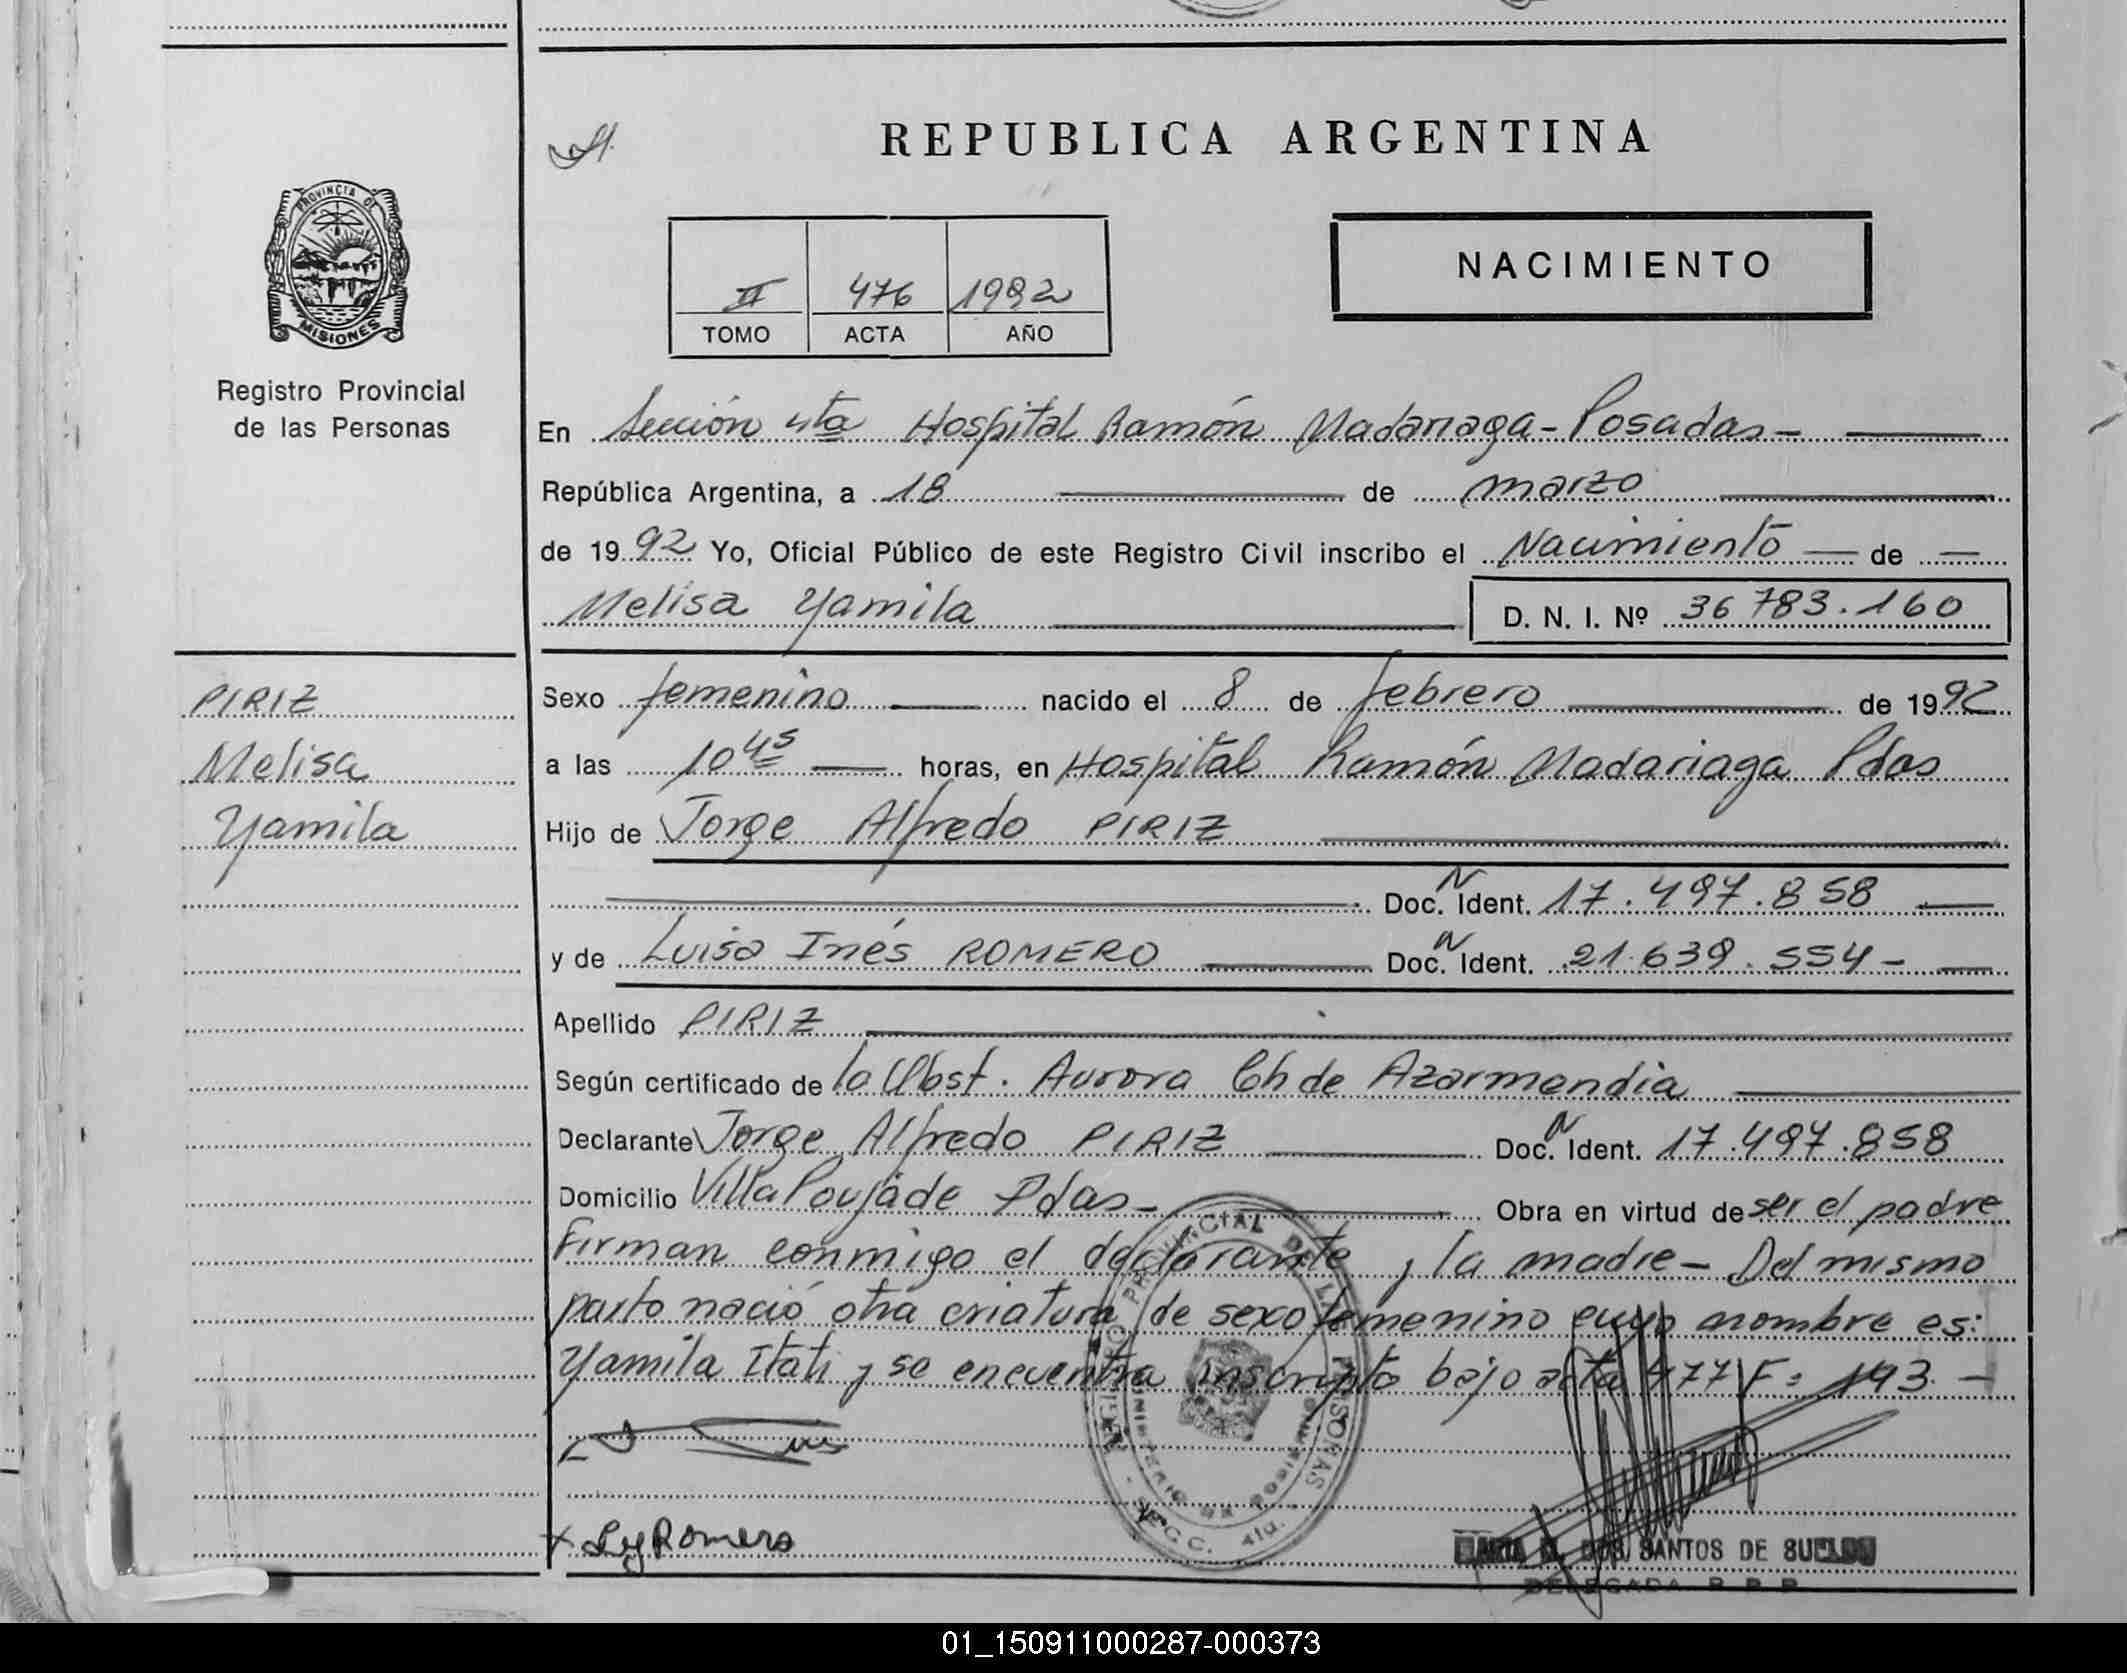 REPUBLICA ARGENTINA
PROVINCIA DE
MISIONES
Registro Provincial
de las Personas
II 476 1992
TOMO ACTA AÑO
NACIMIENTO
En Sección 4ta Hospital Ramón Madariaga - Posadas -
República Argentina, a 18 de marzo
de 1992 Yo, Oficial Público de este Registro Civil inscribo el Nacimiento de
Melisa Yamila D. N. I. Nº 36 783.160
PIRIZ
Melisa
Yamila
Sexo femenino nacido el 8 de febrero de 1992
a las 10 45 horas, en Hospital Ramón Madariaga Pdas
Hijo de Jorge Alfredo PIRIZ
Doc. N Ident. 17.497.858
y de Luisa Inés ROMERO Doc. N Ident. 21.639.554 -
Apellido PIRIZ
Según certificado de la Obst. Aurora Ch de Azarmendia
Declarante Jorge Alfredo PIRIZ Doc. N Ident. 17.497.858
Domicilio Villa Poujade Pdas - Obra en virtud de ser el padre
Firman conmigo el declarante y la madre - Del mismo
parto nació otra criatura de sexo femenino cuyo nombre es:
Yamila Itati y se encuentra inscripto bajo acta 477 F: 193 -
REGISTRO PROVINCIAL DE LAS PERSONAS
MINISTERIO DE GOBIERNO
SECC. 4ta.
x LyRomero
DOS SANTOS DE
DELEGADA R. P. P.
01_150911000287-000373